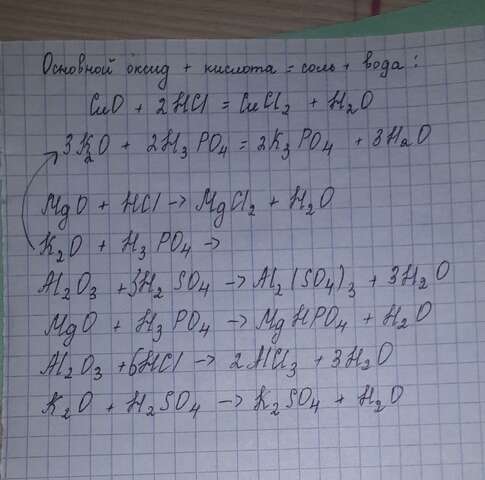 Основной оксид + кислота = соль + вода:
CuO + 2HCl = CuCl2 + H2O
3K2O + 2H3PO4 = 2K3PO4 + 3H2O
MgO + HCl -> MgCl2 + H2O
K2O + H3PO4 ->
Al2O3 + 3H2SO4 -> Al2(SO4)3 + 3H2O
MgO + H3PO4 -> MgHPO4 + H2O
Al2O3 + 6HCl -> 2AlCl3 + 3H2O
K2O + H2SO4 -> K2SO4 + H2O